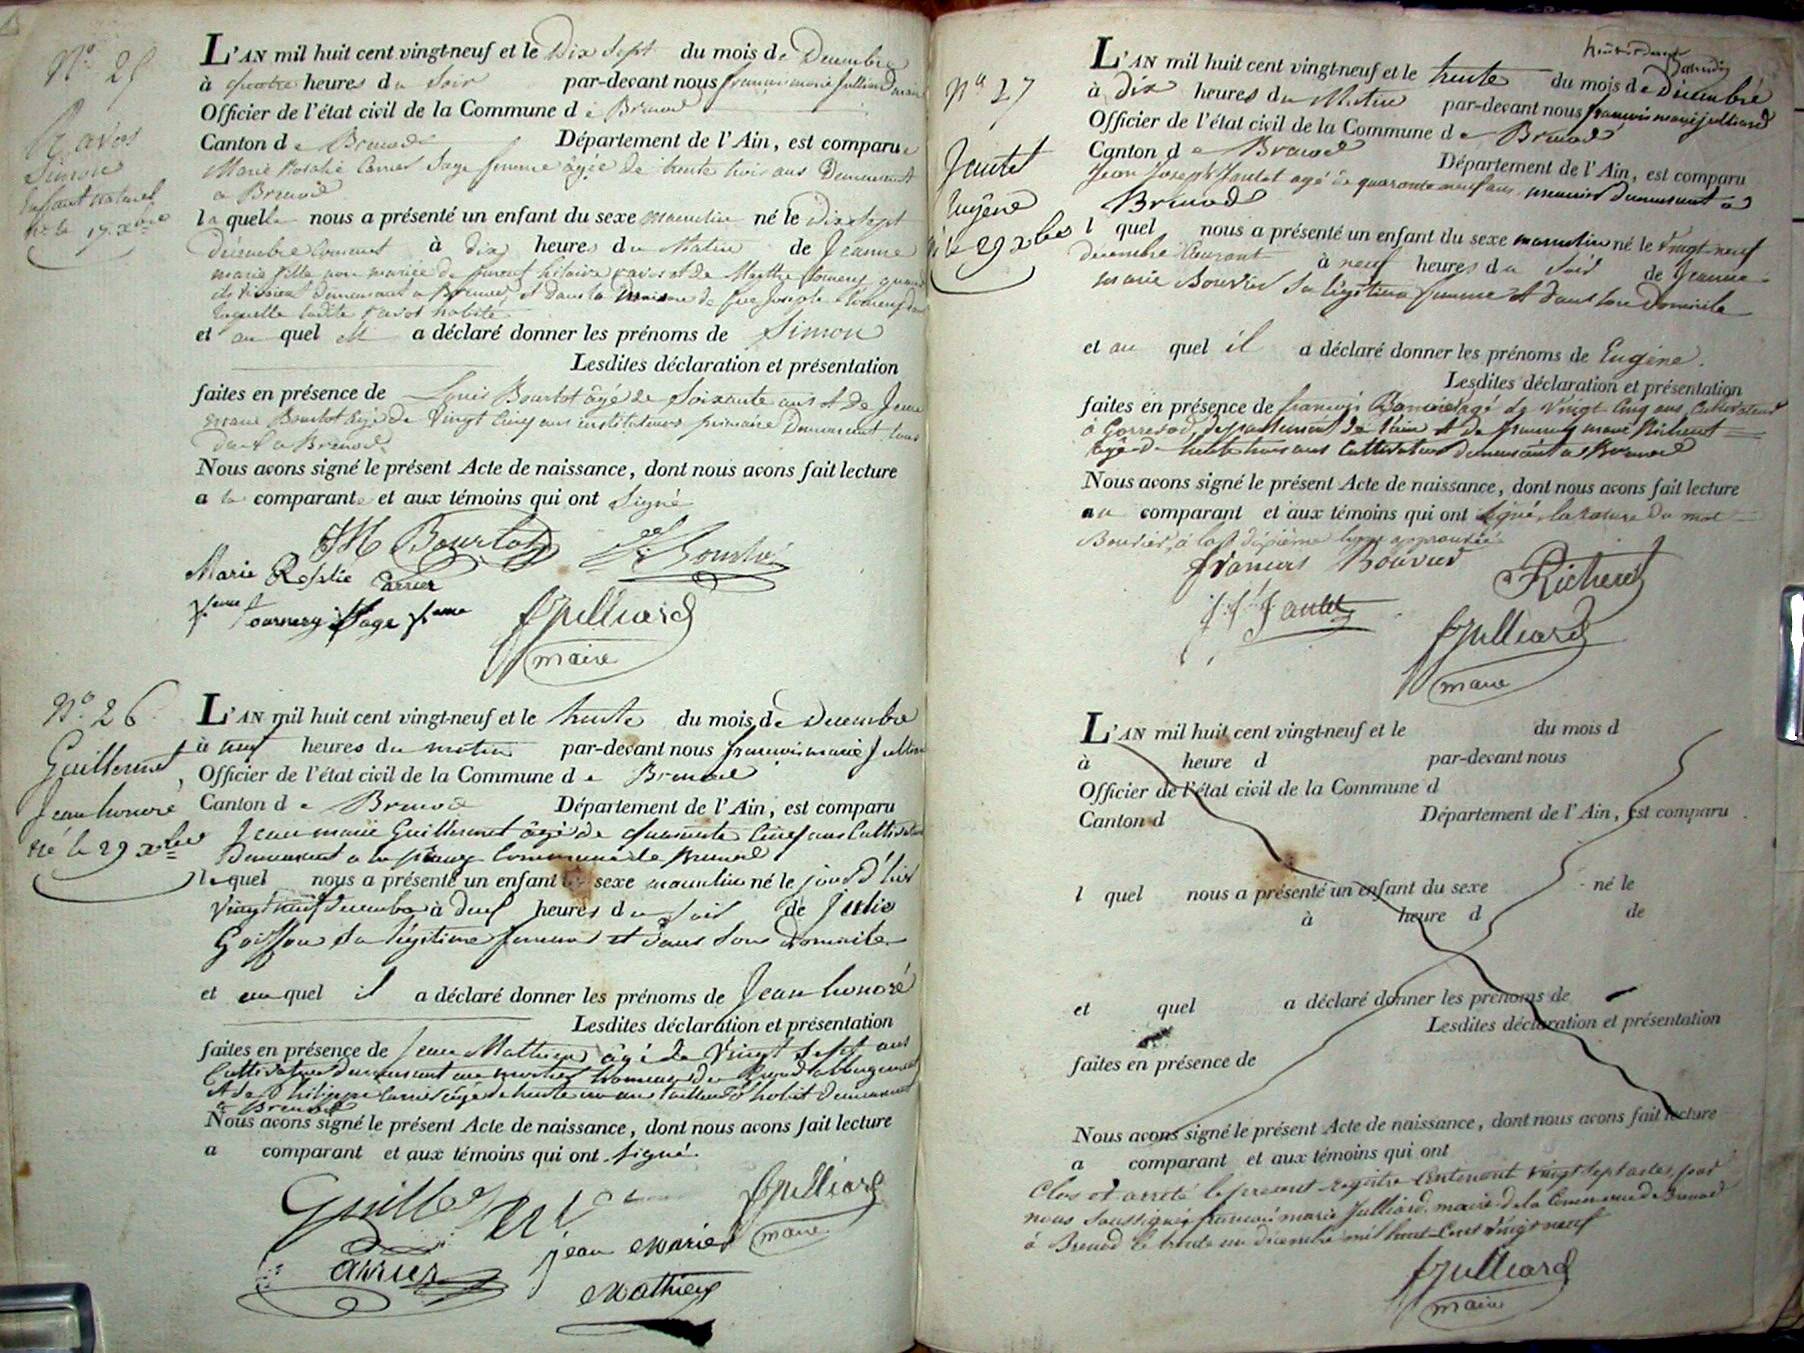 N.º 25
Ravot
Simon
Enfant naturel
né le 17 Xbre
L'AN mil huit cent vingt-neuf et le Dix Sept du mois de Décembre
à quatre heures du Soir par-devant nous françois marie Julliard maire
Officier de l'état civil de la Commune de Brenod
Canton de Brenod Département de l'Ain, est comparue
Marie Rosalie Carrier Sage femme âgée de trente trois ans Demeurant
a Brenod
laquelle nous a présenté un enfant du sexe masculin né le dix Sept
décembre Courant à dix heures du Matin de Jeanne
marie fille non mariée de hilaire ravot et de Marthe
demeurant a Brenod, et dans la maison de Joseph
laquelle ladite ravot habite
et au quel elle a déclaré donner les prénoms de Simon
Lesdites déclaration et présentation
faites en présence de Louis Bourlot âgé de Soixante ans et de Jean
Bourlot âgé de Vingt Cinq ans instituteur primaire Demeurant tous
deux a Brenod
Nous avons signé le présent Acte de naissance, dont nous avons fait lecture
a la comparante et aux témoins qui ont Signé
JM Bourlot
Bourlot
Marie Rosalie Carrier
feme tournery Sage feme
Julliard
maire
N.º 26
Guillermet
Jean honoré
né le 29 Xbre
L'AN mil huit cent vingt-neuf et le trente du mois de Décembre
à neuf heures du matin par-devant nous françois marie Julliard
Officier de l'état civil de la Commune de Brenod
Canton de Brenod Département de l'Ain, est comparu
Jean marie Guillermet âgé de quarante Cinq ans Cultivateur
Demeurant a Commune de Brenod
lequel nous a présenté un enfant du sexe masculin né le jour d'hier
Vingt neuf décembre à deux heures du Soir de Julie
Goiffon Sa légitime femme et dans Son Domicile
et au quel il a déclaré donner les prénoms de Jean honoré
Lesdites déclaration et présentation
faites en présence de Jean Mathieu âgé de Vingt Sept ans
Cultivateur demeurant au
et de Philippe Carrier âgé de trente un ans tailleur d'habit demeurant
a Brenod
Nous avons signé le présent Acte de naissance, dont nous avons fait lecture
a comparant et aux témoins qui ont Signé
Guillermet
Julliard
maire
Carrier
jean marie
mathieu
N.º 27
Jantet
Eugène
né le 29 Xbre
L'AN mil huit cent vingt-neuf et le trente du mois de Décembre
à dix heures du Matin par-devant nous françois marie julliard
Officier de l'état civil de la Commune de Brenod
Canton de Brenod Département de l'Ain, est comparu
Jean Joseph Jantet agé de quarante neuf ans, menuisier demeurant a
Brenod
l quel nous a présenté un enfant du sexe masculin né le Vingt neuf
décembre Courant à neuf heures du Soir de Jeanne
marie Bouvier Sa légitime femme et dans Son Domicile
et au quel il a déclaré donner les prénoms de Eugène.
Lesdites déclaration et présentation
faites en présence de françois Bouvier agé de Vingt Cinq ans Cultivateur
à département de l'ain et de françois marie Richerot
âgé de trente trois ans Cultivateur demeurant a Brenod
Nous avons signé le présent Acte de naissance, dont nous avons fait lecture
au comparant et aux témoins qui ont Signé, la rature du mot
Bouvier, à la dixième ligne approuvée
françois Bouvier
Richerot
J. J. Jantet
Julliard
maire
L'AN mil huit cent vingt-neuf et le du mois d
à heure d par-devant nous
Officier de l'état civil de la Commune d
Canton d Département de l'Ain, est comparu
l quel nous a présenté un enfant du sexe né le
à heure d de
et quel a déclaré donner les prénoms de
Lesdites déclaration et présentation
faites en présence de
Nous avons signé le présent Acte de naissance, dont nous avons fait lecture
a comparant et aux témoins qui ont
Clos et arrêté le présent registre Contenant vingt sept actes par
nous Soussigné françois marie Julliard maire de la Commune de Brenod
à Brenod le trente un décembre mil huit Cent Vingt neuf
Julliard
maire